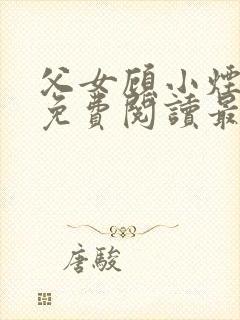 父女顾小煙
免費閱讀最
唐駿